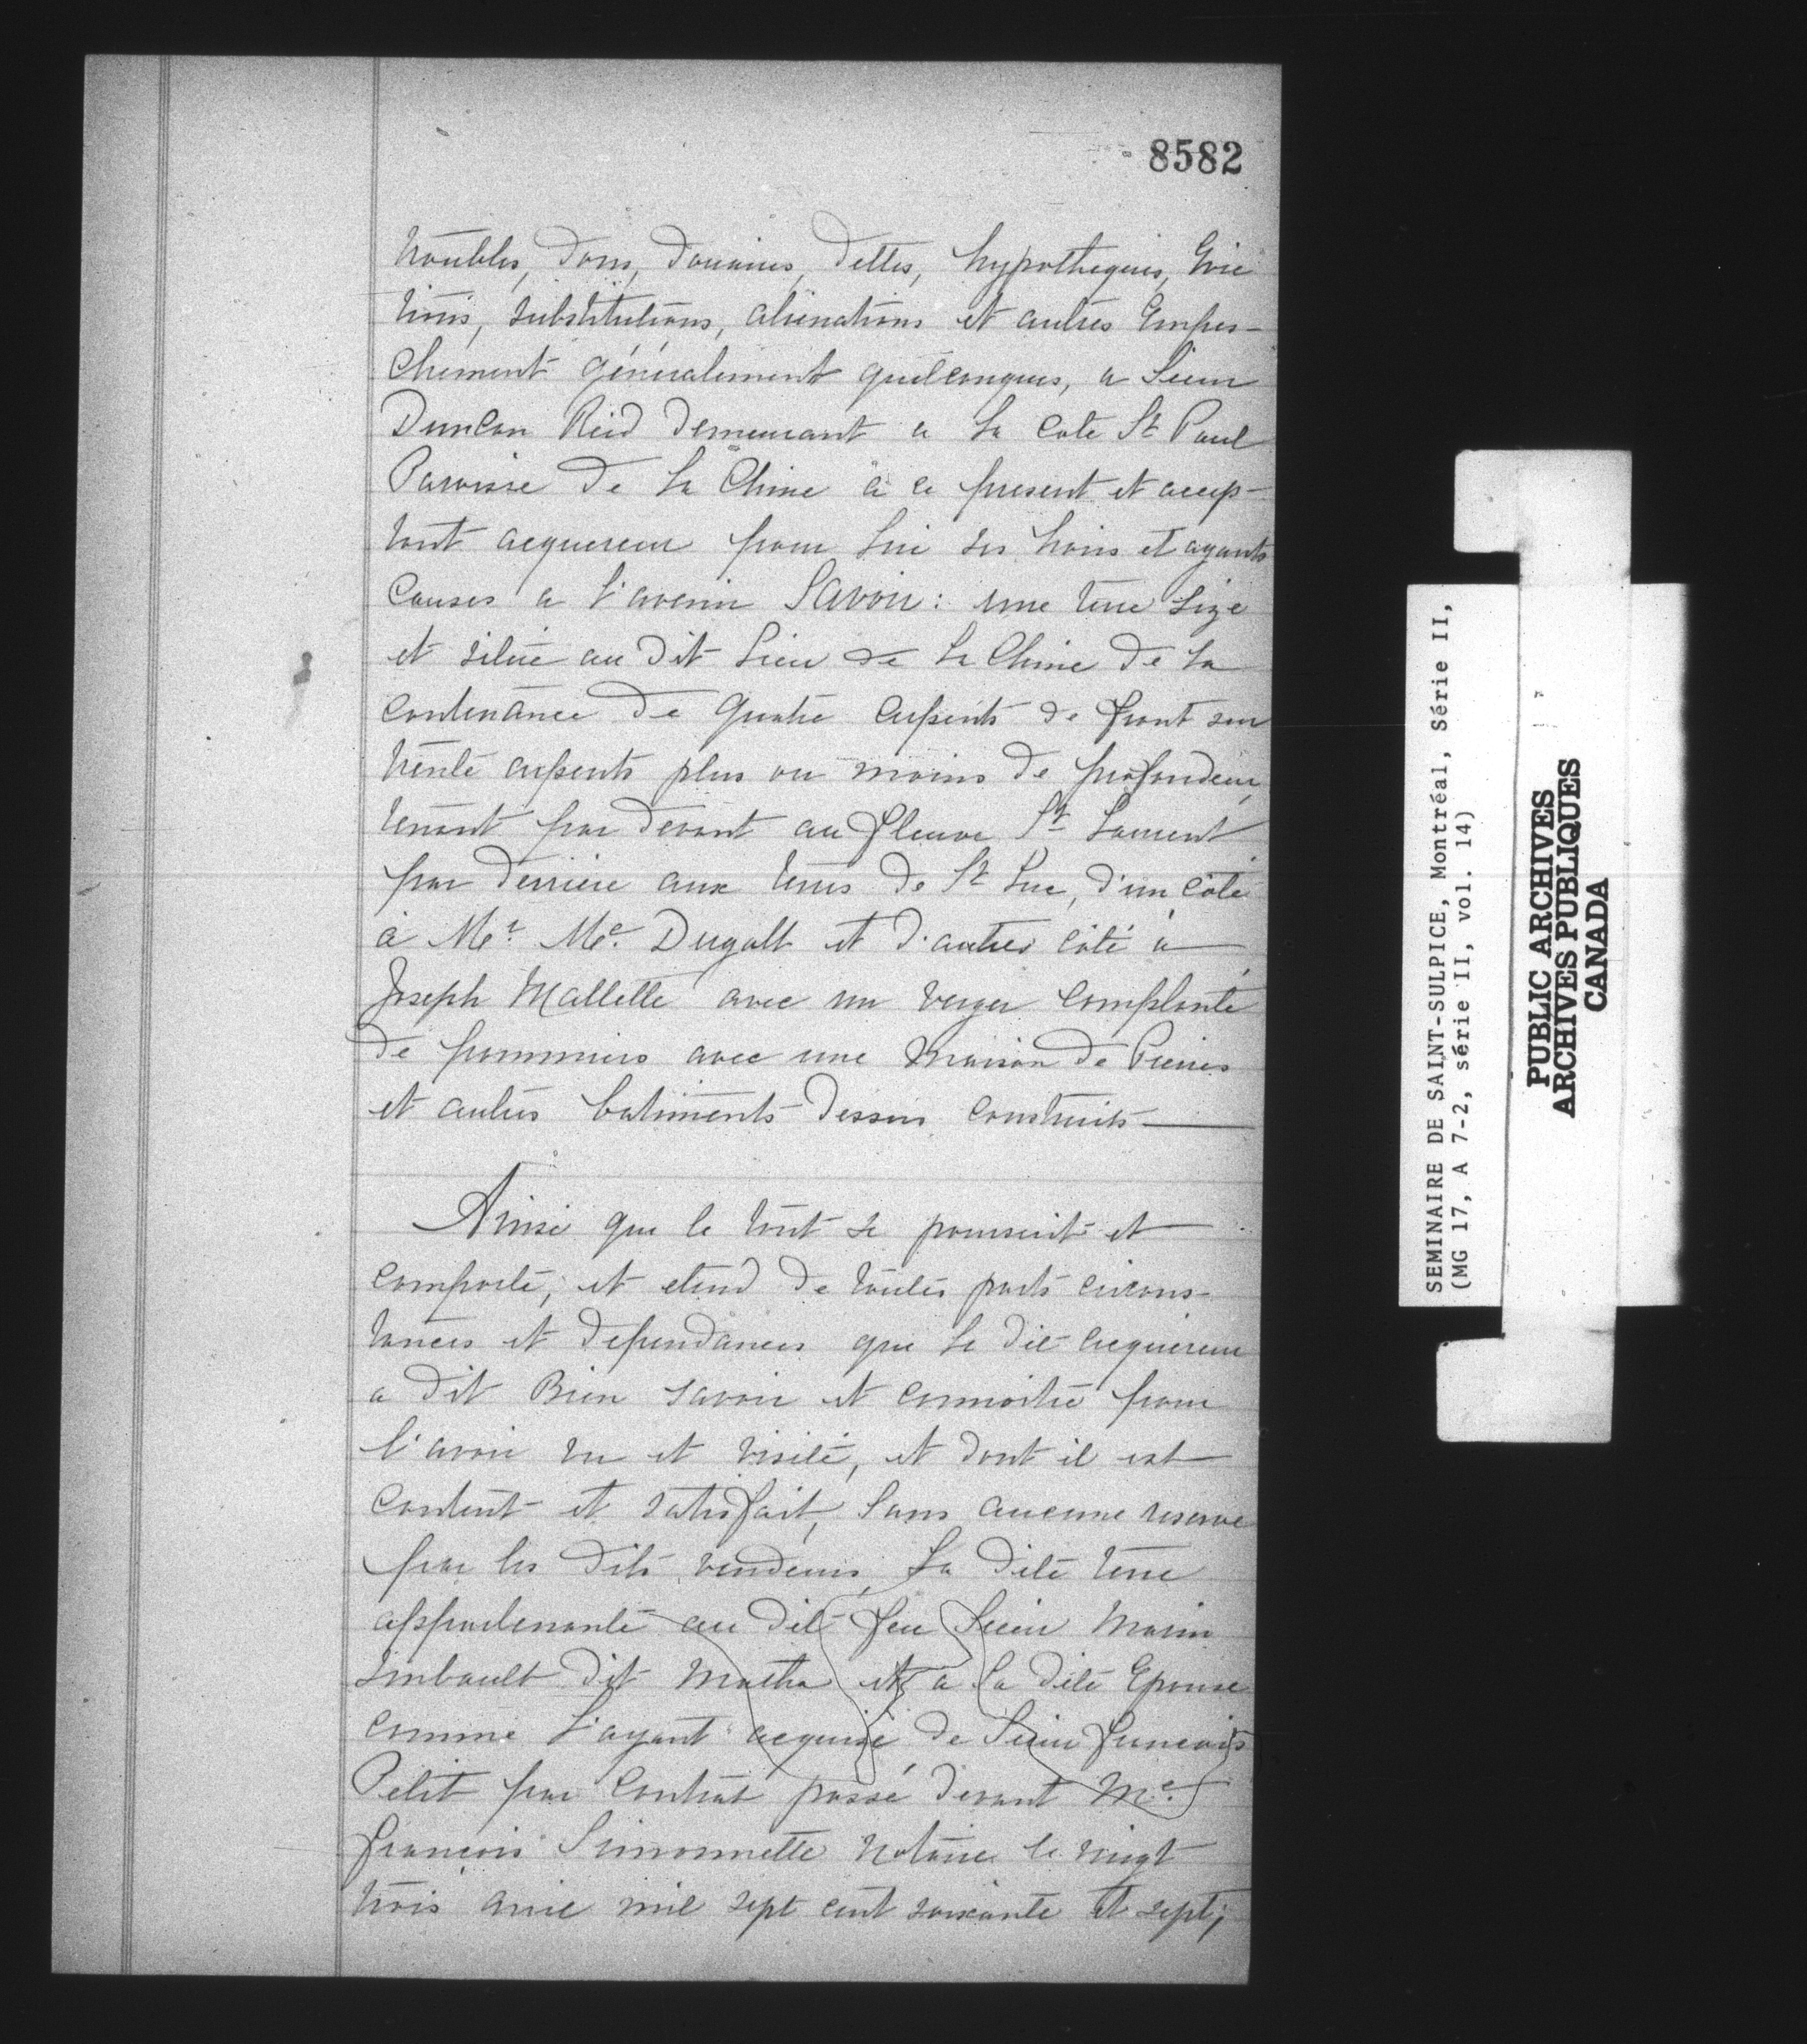 8582
troubles, dons, douaires, dettes, hypotheques, Evic
tions, substitutions, alienations et autres Empes-
chement généralement quelconques, a Sieur
Duncan Reid demeurant a La Cote St Paul
Paroisse de La Chine à ce present et accep-
tant acquereur pour lui ses hoirs et ayants
causes a l'avenir Savoir: une terre size
et située au dit Lieu de La Chine de la
contenance de quatre arpents de front sur
trente arpents plus ou moins de profondeur,
tenant par devant au fleuve St Laurent
par derriere aux terres de St Luc, d'un côté
à Mr. Mc. Dugall et d'autre côté à
Joseph Mallette avec un verger complanté
de pommiers avec une maison de Pierres
et autres batiments dessus construits
Ainsi que le tout se poursuit et
comporte, et etend de toutes parts circons-
tances et dependances que le dit acquereur
a dit Bien savoir et connoitre pour
l'avoir vu et visité, et dont il est
content et satisfait, sans aucune reserve
par les dits vendeurs, La dite terre
appartenante au dit feu Sieur Marin
Imbault dit Matha et a la dite Epouse
comme l'ayant acquise de Sieur francois
Petit par Contrat passé devant Me.
françois Simonnette notaire le vingt
trois avril mil sept cent soixante et sept;
SEMINAIRE DE SAINT-SULPICE, Montréal, Série II,
(MG 17, A 7-2, série II, vol. 14)
PUBLIC ARCHIVES
ARCHIVES PUBLIQUES
CANADA